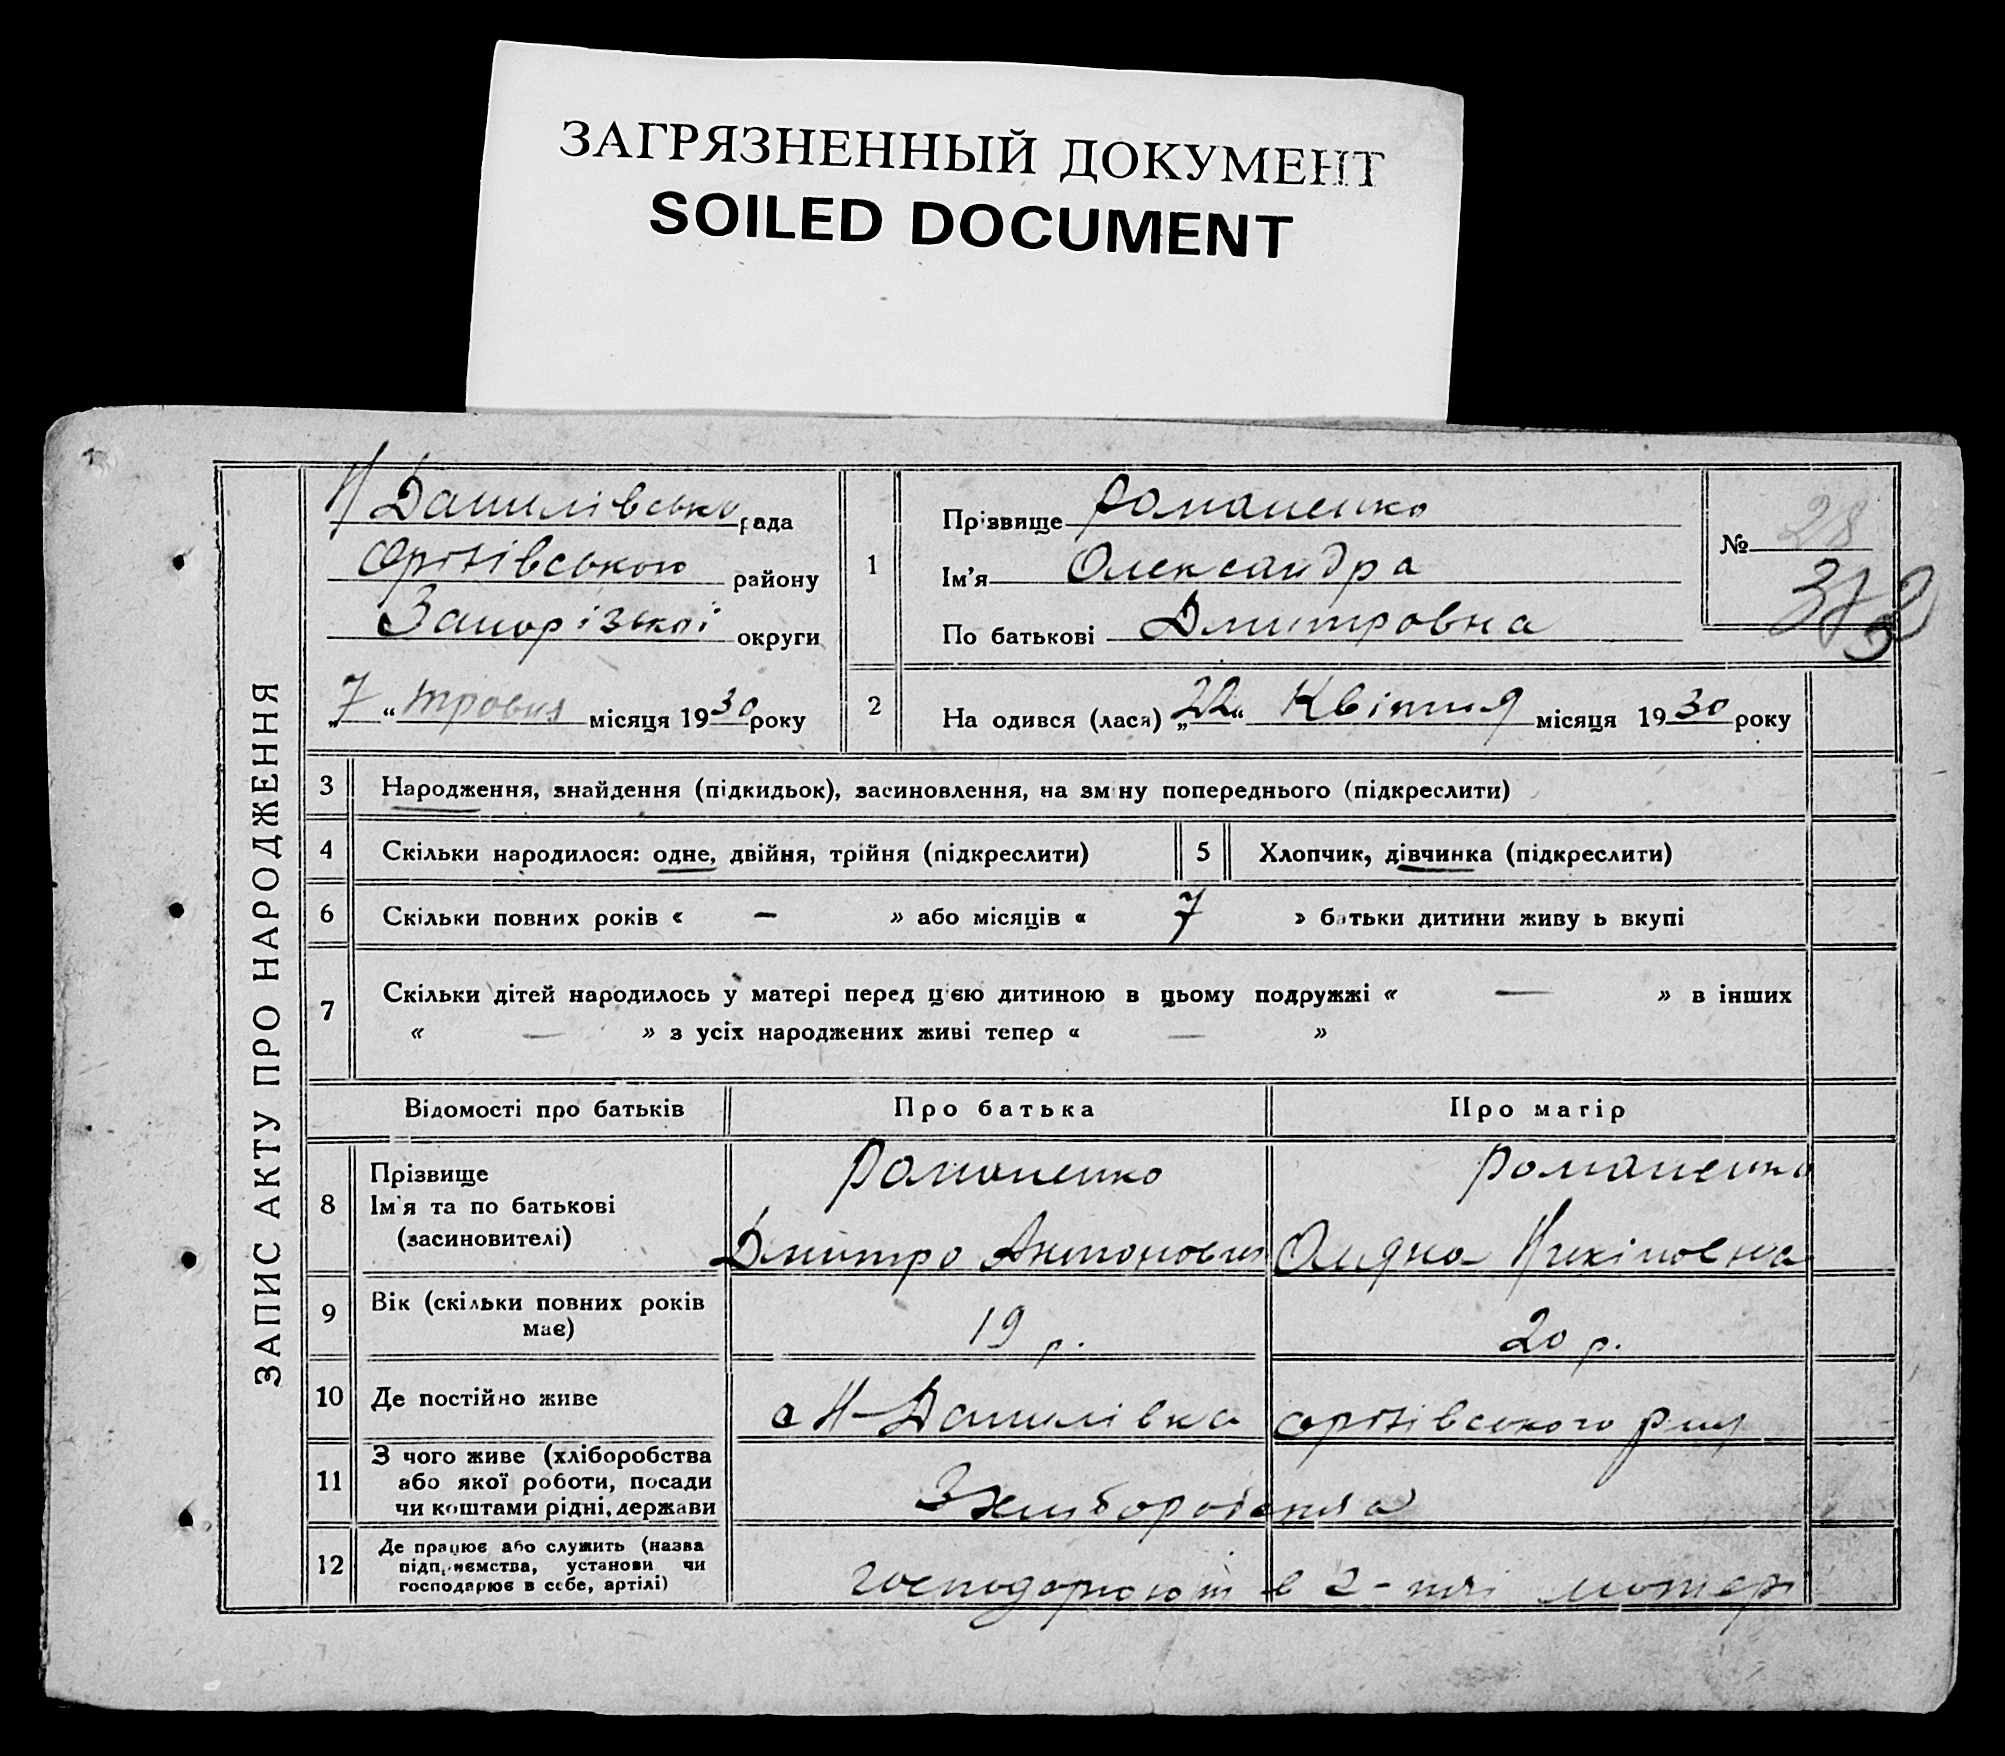 ЗАГРЯЗНЕННЫЙ ДОКУМЕНТ
SOILED DOCUMENT
ЗАПИС АКТУ ПРО НАРОДЖЕННЯ
Н Данилівсько рада
Оріхівського району
Запорізької округи
„7“ травня місяця 1930 року
1
Прізвище Романенко
Ім'я Олександра
По батькові Дмитровна
№ 28
2
На одився (лася) „22“ Квітня місяця 1930 року
3 Народження, знайдення (підкидьок), засиновлення, на зміну попереднього (підкреслити)
4 Скільки народилося: одне, двійня, трійня (підкреслити)
5 Хлопчик, дівчинка (підкреслити)
6 Скільки повних років « — » або місяців « 7 » батьки дитини живу ь вкупі
7 Скільки дітей народилось у матері перед цією дитиною в цьому подружжі « — » в інших
« — » з усіх народжених живі тепер « — »
Відомості про батьків Про батька Про матір
8 Прізвище
Ім'я та по батькові
(засиновителі)
Романенко
Дмитро Антонович
Романенко
9 Вік (скільки повних років
має)
19 р. 20 р.
10 Де постійно живе
с Н-Данилівка Оріхівського рну
11 З чого живе (хліборобства
або якої роботи, посади
чи коштами рідні, держави
З хліборобства
12 Де працює або служить (назва
підприємства, установи чи
господарює в себе, артілі)
господарюють в